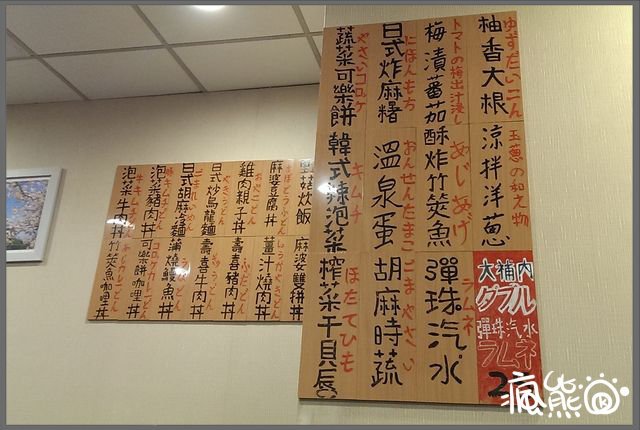 柚香大根
ゆずだいこん
涼拌洋蔥
玉葱の和え物
梅漬蕃茄
トマトの梅出汁浸し
酥炸竹筴魚
あじあげ
彈珠汽水
ラムネ
日式炸麻糬
にほんもち
溫泉蛋
おんせんたまこ
胡麻時蔬
ごまやさい
蔬菜可樂餅
やさいコロッケ
韓式辣泡菜
キムチ
榨菜干貝唇
ほたてひも
大補内
ダブル
彈珠汽水
ラムネ
炊飯
麻婆雙拼丼
麻婆豆腐丼
薑汁燒肉丼
雞肉親子丼
おやこどん
壽喜豬肉丼
日式炒烏龍麵
やきうどん
壽喜牛肉丼
日式胡麻涼麵
蒲燒鰻魚丼
泡菜豬肉丼
可樂餅咖哩丼
泡菜牛肉丼
竹筴咖哩丼
瘋熊